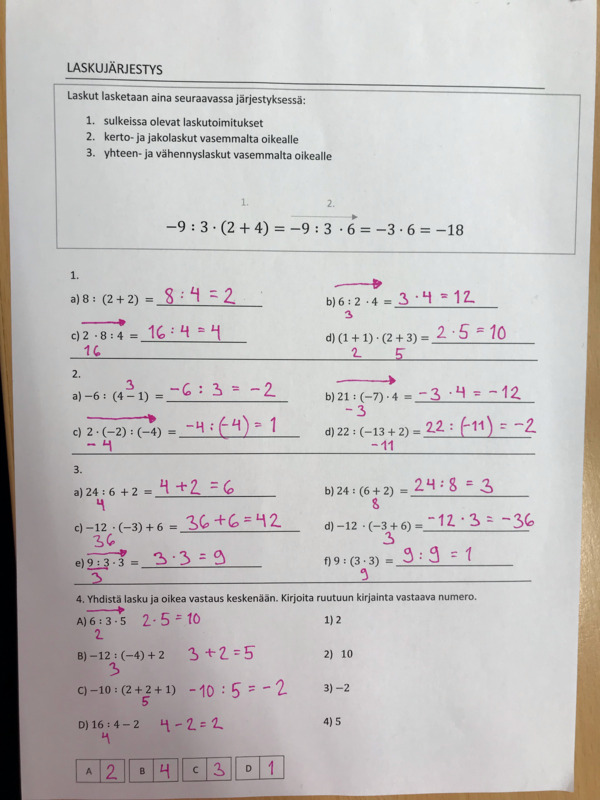 LASKUJÄRJESTYS
Laskut lasketaan aina seuraavassa järjestyksessä:
1. sulkeissa olevat laskutoimitukset
2. kerto- ja jakolaskut vasemmalta oikealle
3. yhteen- ja vähennyslaskut vasemmalta oikealle
1. 2.
−9 : 3 · (2 + 4) = −9 : 3 · 6 = −3 · 6 = −18
1.
a) 8 : (2 + 2) = 8 : 4 = 2 b) 6 : 2 · 4 = 3 · 4 = 12
3
c) 2 · 8 : 4 = 16 : 4 = 4 d) (1 + 1) · (2 + 3) = 2 · 5 = 10
16 2 5
2.
3
a) −6 : (4 − 1) = −6 : 3 = −2 b) 21 : (−7) · 4 = −3 · 4 = −12
−3
c) 2 · (−2) : (−4) = −4 : (−4) = 1 d) 22 : (−13 + 2) = 22 : (−11) = −2
−4 −11
3.
a) 24 : 6 + 2 = 4 + 2 = 6 b) 24 : (6 + 2) = 24 : 8 = 3
4 8
c) −12 · (−3) + 6 = 36 + 6 = 42 d) −12 · (−3 + 6) = −12 · 3 = −36
36 3
e) 9 : 3 · 3 = 3 · 3 = 9 f) 9 : (3 · 3) = 9 : 9 = 1
3 9
4. Yhdistä lasku ja oikea vastaus keskenään. Kirjoita ruutuun kirjainta vastaava numero.
A) 6 : 3 · 5 2 · 5 = 10 1) 2
2
B) −12 : (−4) + 2 3 + 2 = 5 2) 10
3
C) −10 : (2 + 2 + 1) −10 : 5 = −2 3) −2
5
D) 16 : 4 − 2 4 − 2 = 2 4) 5
4
A 2 B 4 C 3 D 1